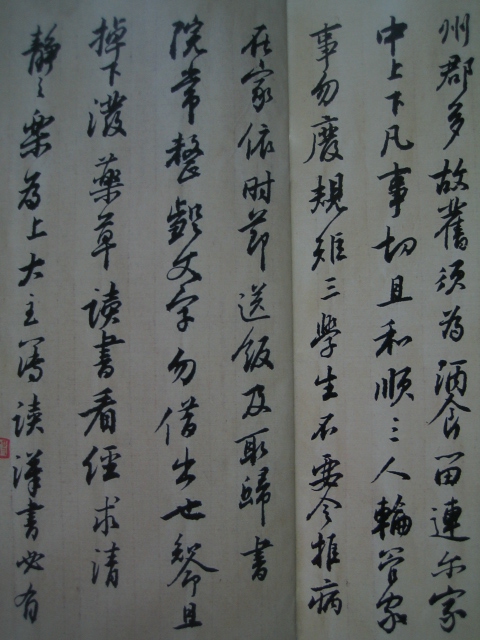 州郡多故舊須為酒食留連尔家
中上下凡事切且和順三人輪管家
事勿廢規矩三學生不要令推病
在家依時節送飯及取歸書
院常整齪文字勿借出也知命且
掉下潑藥草讀書看經求清
靜之樂為上大主簿讀漢書必有